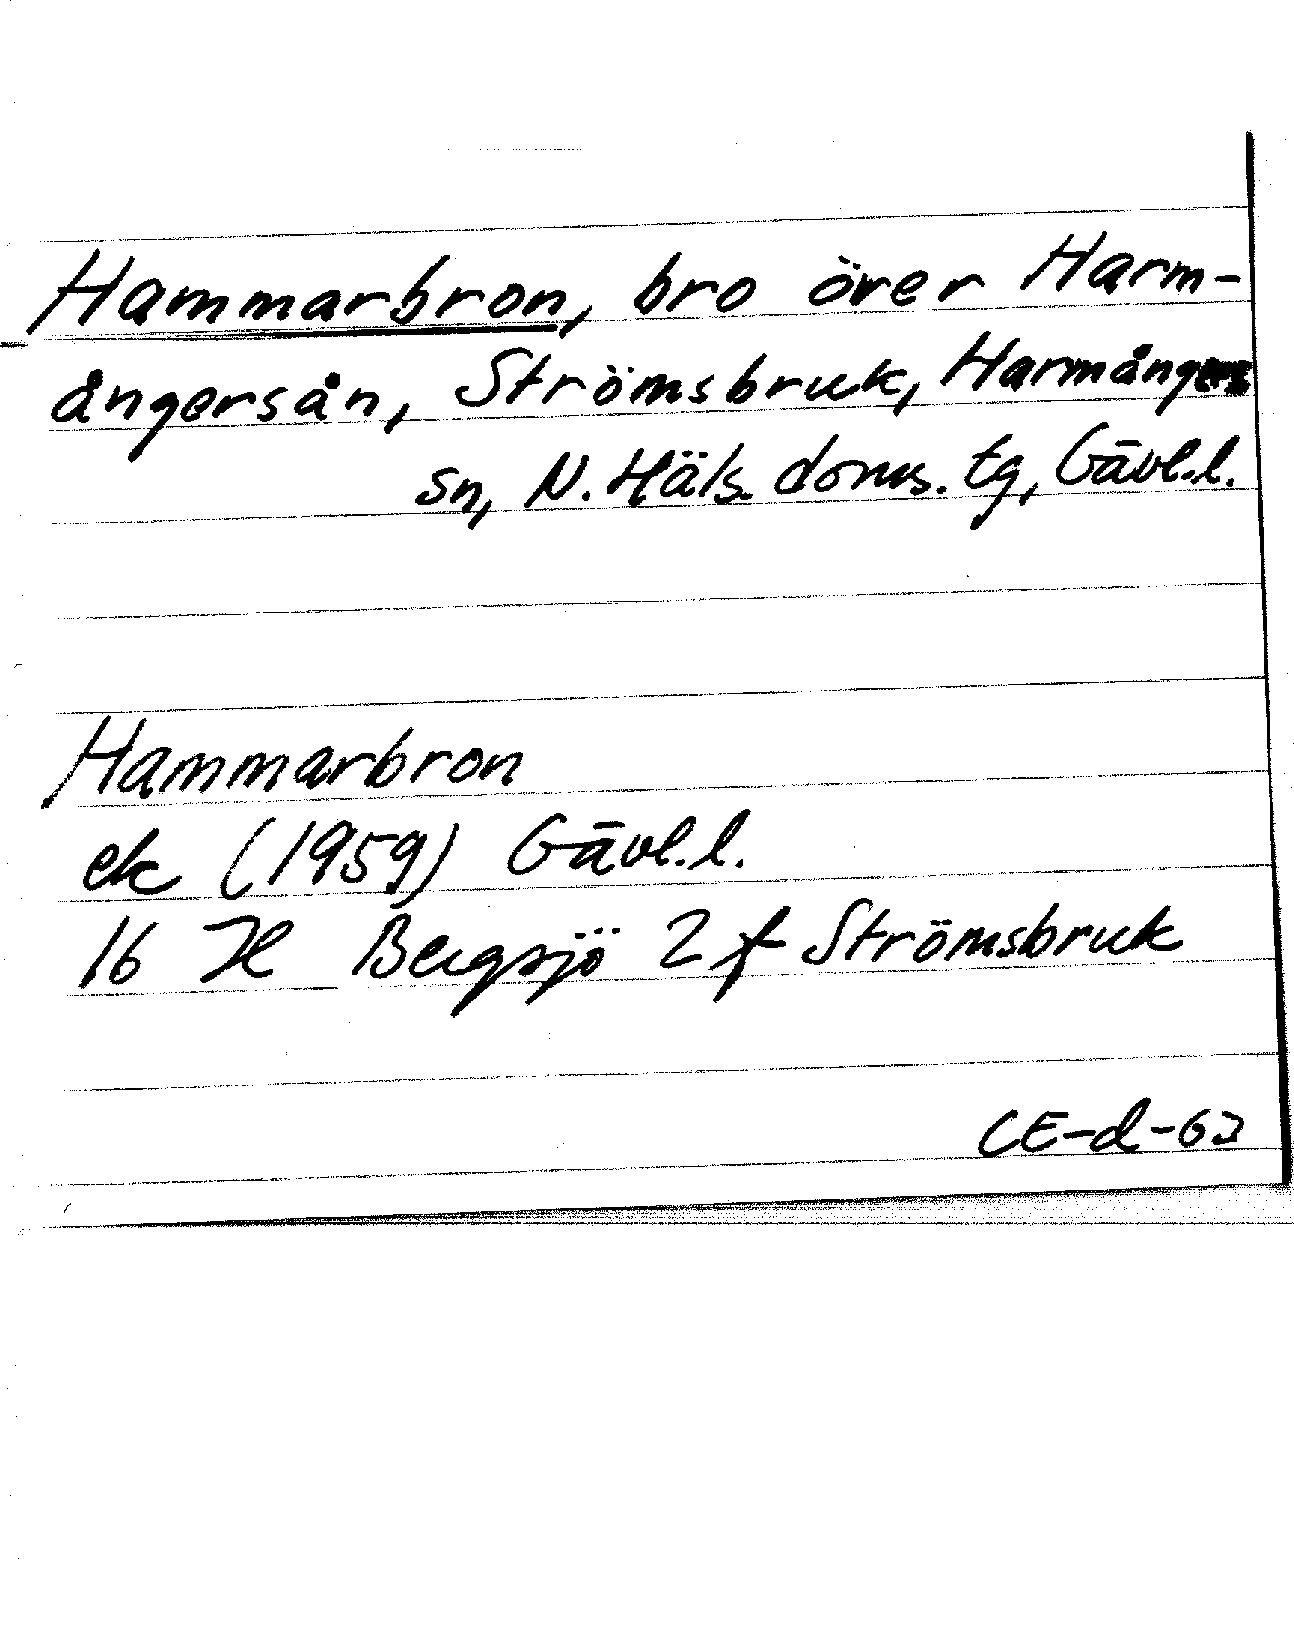 Hammarbron, bro över Harm-
ångersån, Strömsbruk, Harmångers
sn, N. Häls. doms. tg, Gävl.l.
Hammarbron
ek (1959) Gävl.l.
16 H Bergsjö 2 f Strömsbruk
CE-d-62